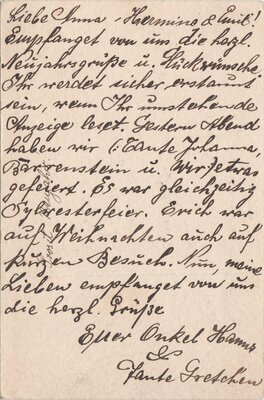 Liebe Anna - Hermine & Emil!
Empfanget von uns die herzl.
Neujahrsgrüße u. Glückwünsche.
Ihr werdet sicher erstaunt
sein, wenn Ihr umstehende
Anzeige leset. Gestern Abend
haben wir (: Tante Johanna,
u. Wir) etwas
gefeiert. Es war gleichzeitig
Sylvesterfeier. Erich war
auf Weihnachten auch auf
kurzen Besuch. Nun, meine
Lieben empfanget von uns
die herzl. Grüße
Euer Onkel Hanns
&
Tante Gretchen